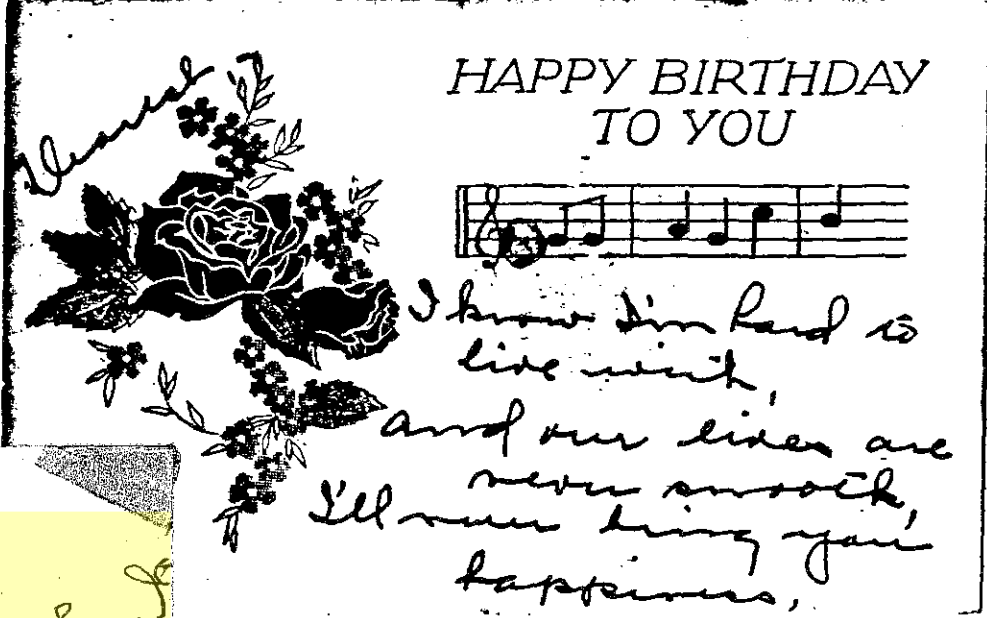 Dearest
HAPPY BIRTHDAY
TO YOU
I know I'm hard to
live with,
and our lives are
never smooth,
I'll never bring you
happiness,